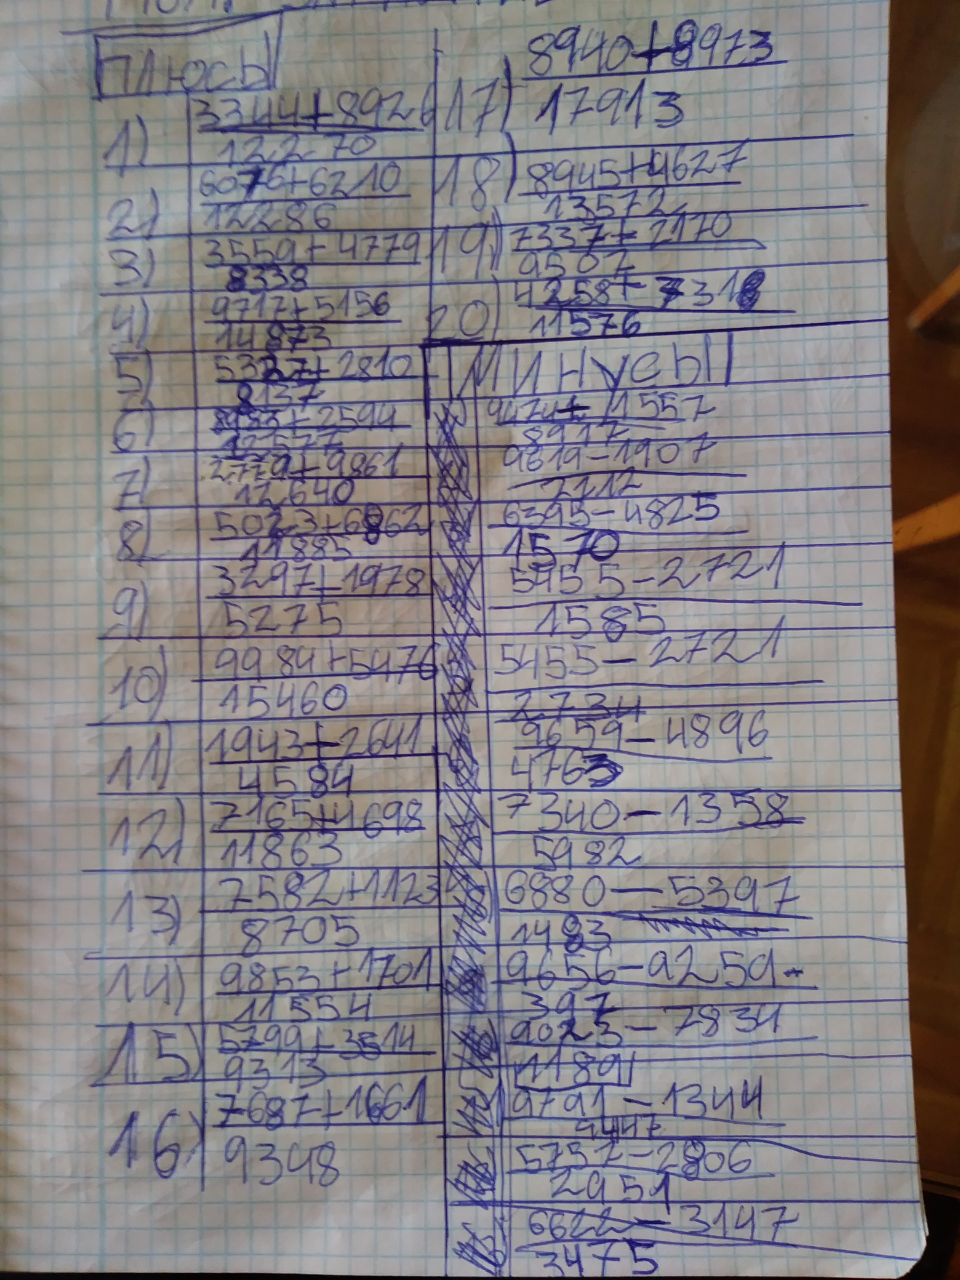 ПЛЮСЫ
1) 3344+8926
12270
2) 6076+6210
12286
3) 3559+4779
8338
4) 9717+5156
14873
5) 5327+2810
8137
6) 8983+2594
7) 2779+9861
12640
8) 5023+6862
11885
9) 3297+1978
5275
10) 9984+5476
15460
11) 1943+2641
4584
12) 7165+4698
11863
13) 7582+1123
8705
14) 9853+1701
11554
15) 5799+3514
9313
16) 7687+1661
9348
17) 8940+8973
17913
18) 8945+4627
13572
19) 7337+2170
9507
20) 4258+7318
11576
МИНУСЫ
1557
9619-1907
6395-4825
1570
5455-2721
1585
5455-2721
2734
9659-4896
4763
7340-1358
5982
6880-5397
1483
9656-9259
397
9023-7834
1189
9791-1344
5757-2806
2951
6622-3147
3475